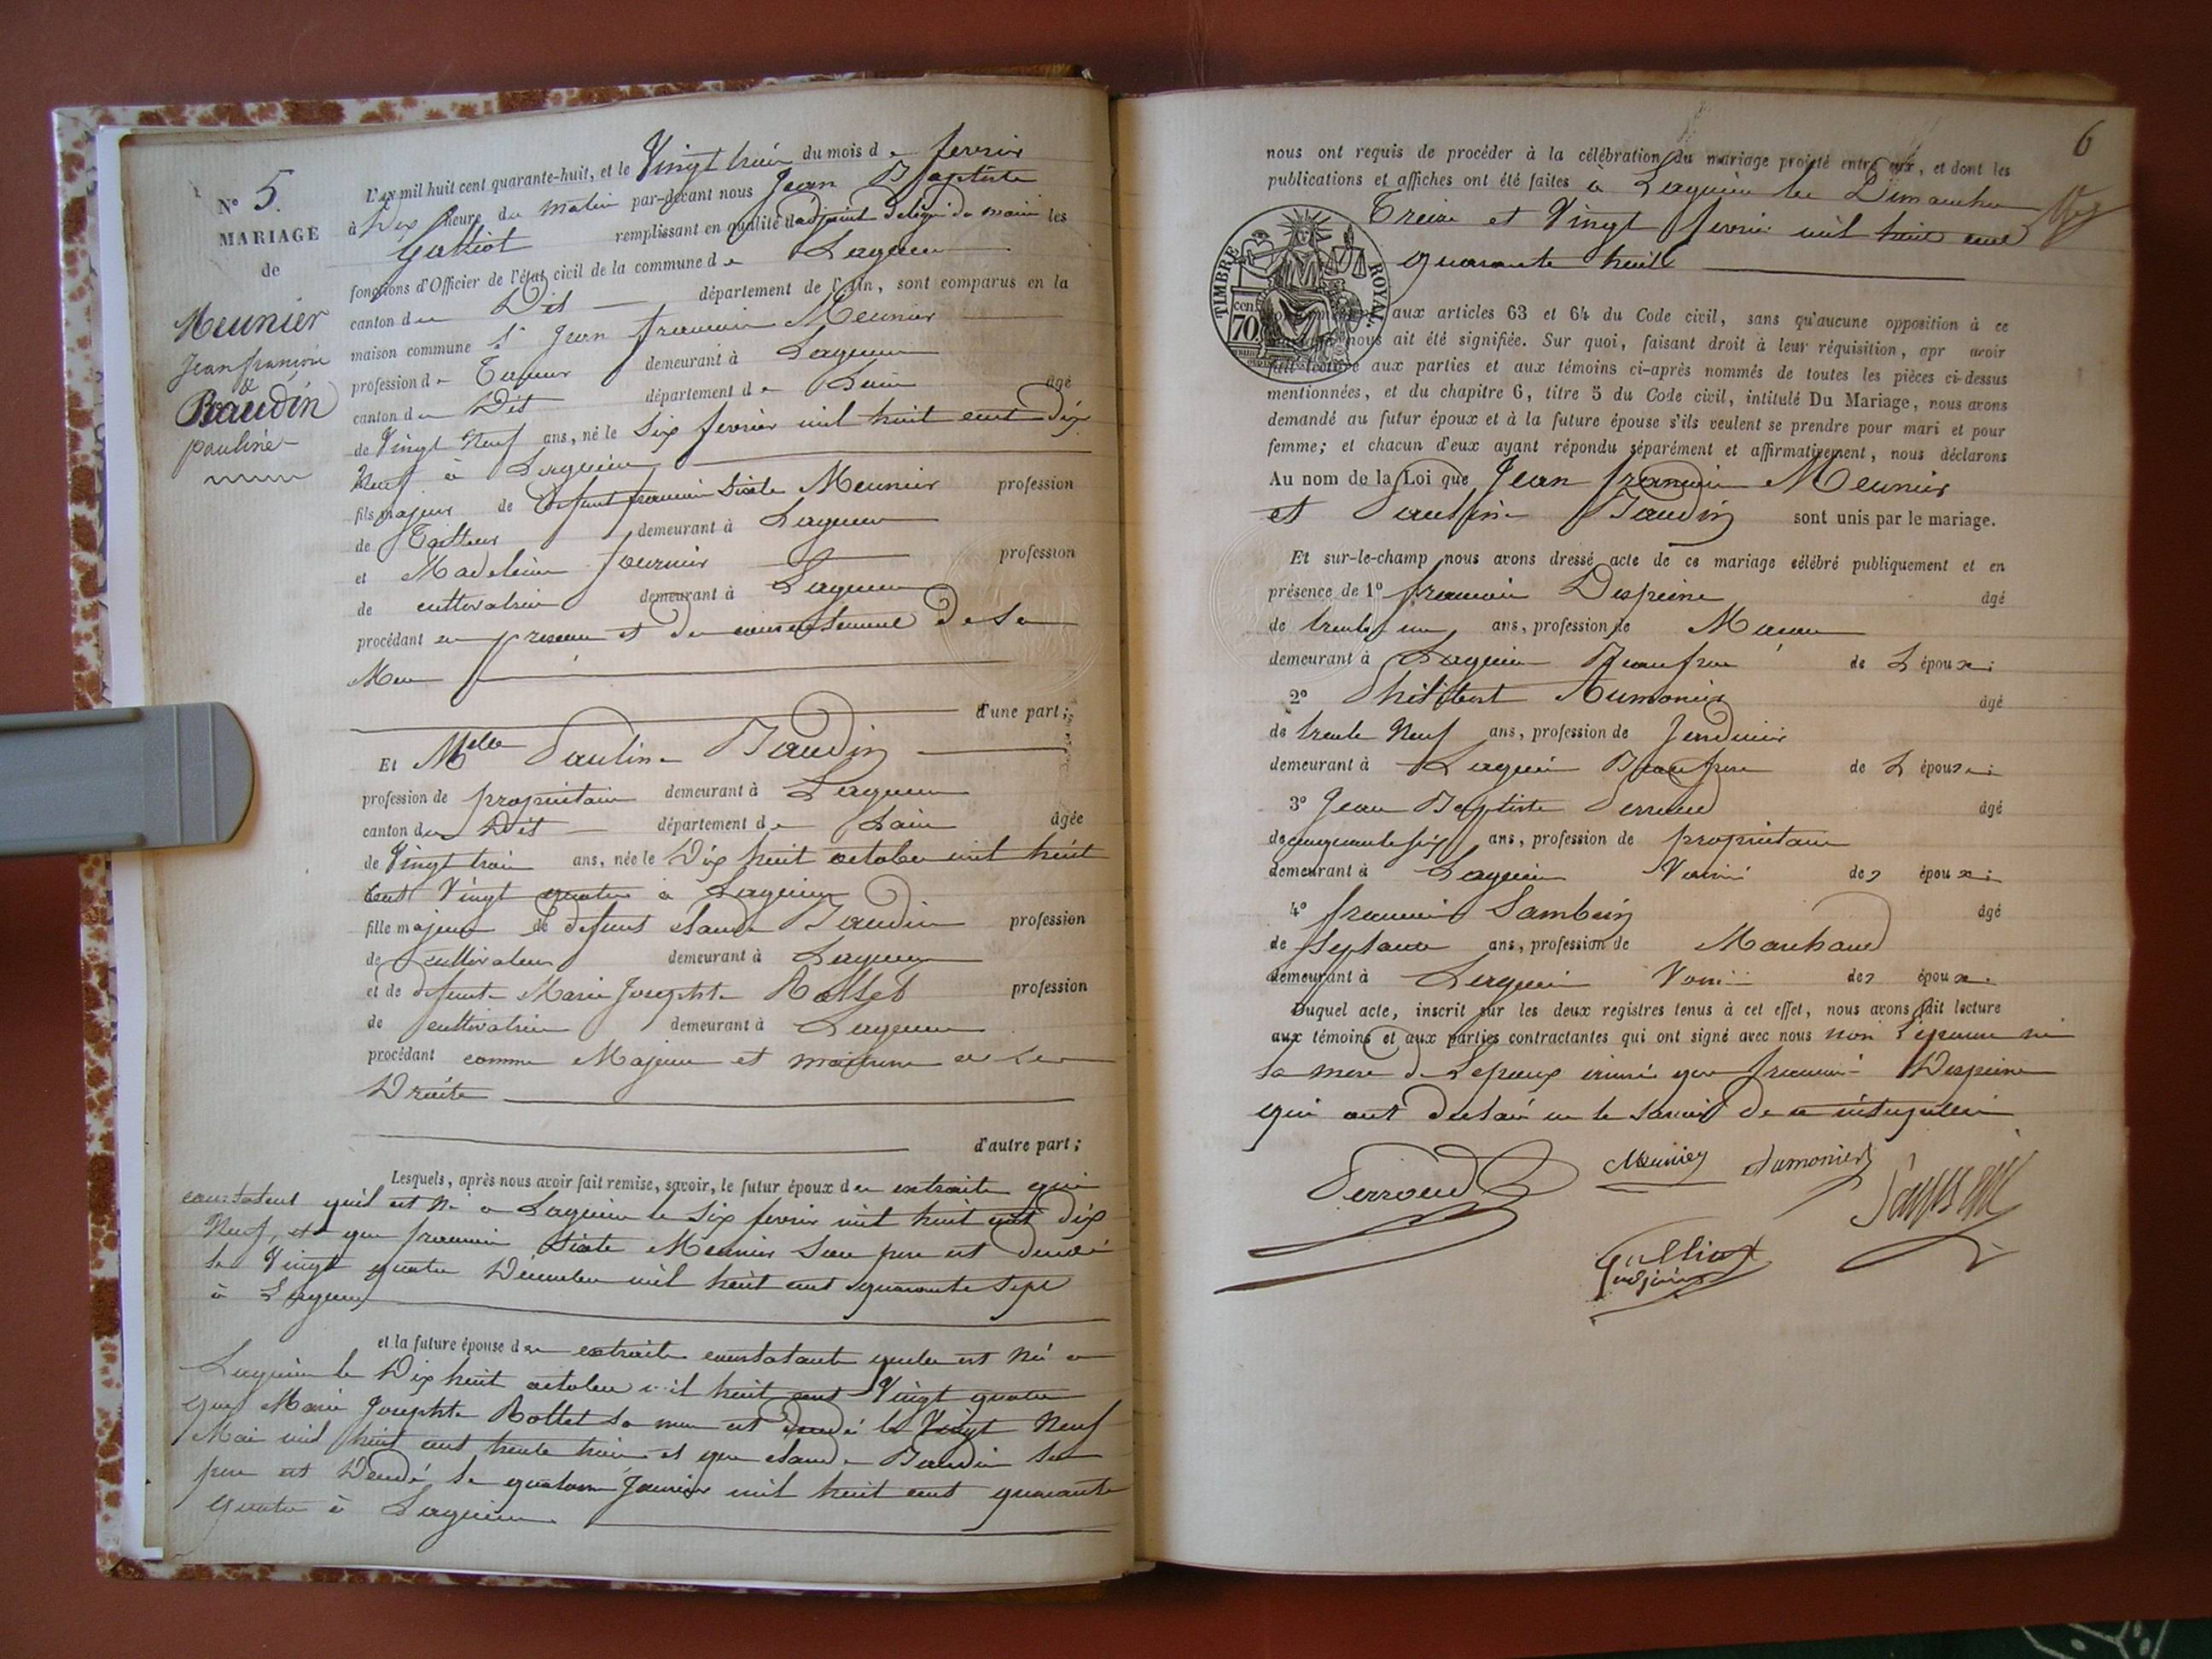 N° 5.
MARIAGE
de
Meunier
Jean françois
&
Baudin
pauline
L'an mil huit cent quarante-huit, et le Vingt trois du mois de fevrier
à Dix heure du Matin par-devant nous Jean Baptiste
Galliot remplissant en qualité d'adjoint délégué du maire les
fonctions d'Officier de l'état civil de la commune de Lagnieu
canton du Dit département de l'Ain, sont comparus en la
maison commune Sr Jean francois Meunier
profession de demeurant à Lagnieu
canton du Dit département de Lain âgé
de Vingt Neuf ans, né le Six fevrier mil huit cent dix
Neuf à Lagnieu
fils majeur de Defunt francois Sixte Meunier profession
de Tailleur demeurant à Lagnieu
et Madeleine fournier profession
de cultivatrice demeurant à Lagnieu
procédant en presence et du consentement De Sa
Mere
d'une part;
Et Melle Pauline Baudin
profession de propriétaire demeurant à Lagnieu
canton du Dit département de Lain âgée
de Vingt trois ans, née le Dix huit octobre mil huit
Cent Vingt quatre à Lagnieu
fille majeure de defunt Claude Baudin profession
de cultivateur demeurant à Lagnieu
et de defunte Marie Josephte Rollet profession
de cultivatrice demeurant à Lagnieu
procédant comme Majeure et maitresse de Ses
Droits
d'autre part;
Lesquels, après nous avoir fait remise, savoir, le futur époux des extraits qui
constatent quil est Né a Lagnieu le Six fevrier mil huit cent dix
Neuf, et que francois Sixte Meunier Son pere est decedé
le Vingt quatre Decembre mil huit cent quarante sept
à Lagnieu
et la future épouse des extraits constatants quelle est Né a
Lagnieu le Dix huit octobre mil huit cent Vingt quatre
que Marie Josephte Rollet sa mere est decedé le Vingt Neuf
Mai mil huit cent trente trois et que claude Baudin Son
pere est Decedé le quatorze Janvier mil huit cent quarante
quatre à Lagnieu
6
nous ont requis de procéder à la célébration du mariage projeté entre eux, et dont les
publications et affiches ont été faites à Lagnieu les Dimanches
Treize et Vingt fevrier mil huit cent
quarante huit
TIMBRE ROYAL
70 cen.
aux articles 63 et 64 du Code civil, sans qu'aucune opposition à ce
nous ait été signifiée. Sur quoi, faisant droit à leur réquisition, apr avoir
fait lecture aux parties et aux témoins ci-après nommés de toutes les pièces ci-dessus
mentionnées, et du chapitre 6, titre 5 du Code civil, intitulé Du Mariage, nous avons
demandé au futur époux et à la future épouse s'ils veulent se prendre pour mari et pour
femme; et chacun d'eux ayant répondu séparément et affirmativement, nous déclarons
Au nom de la Loi que Jean francois Meunier
et Pauline Baudin sont unis par le mariage.
Et sur-le-champ nous avons dressé acte de ce mariage célébré publiquement et en
présence de 1° francois Despeine âgé
de trente un ans, profession de Macon
demeurant à Lagnieu Beaufrere de L époux;
2° Philibert Aumonier âgé
de trente Neuf ans, profession de Jardinier
demeurant à Lagnieu Beaufrere de L époux;
3° Jean Baptiste Perroud âgé
de cinquante six ans, profession de propriétaire
demeurant à Lagnieu Voisin des époux;
4° francois Sambein âgé
de Septante ans, profession de Marchand
demeurant à Lagnieu Voisin des époux.
Duquel acte, inscrit sur les deux registres tenus à cet effet, nous avons fait lecture
aux témoins et aux parties contractantes qui ont signé avec nous non l'épouse ni
la mere de Lepoux ainsi que francois Despeine
qui ont declaré ne le savoir de ce
Perroud Meunier Aumonier
Galliot
adjoint